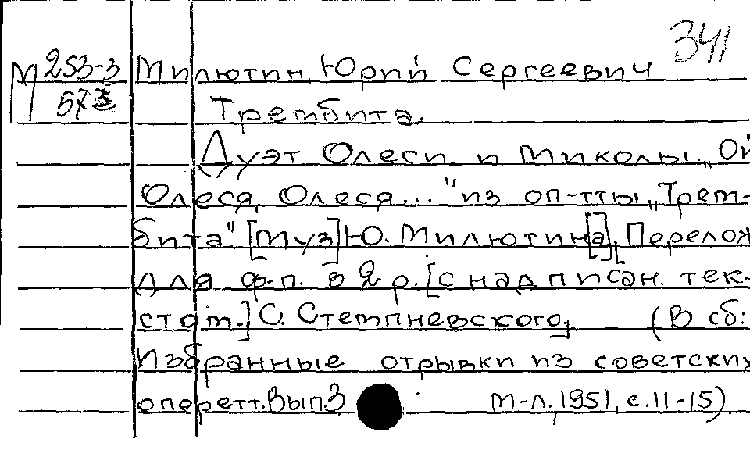 341
М 253-3 Милютин, Юрий Сергеевич
573 Трембита.
Дуэт Олеси и Миколы „Ой
Олеся, Олеся..." из оп-тты „Трем-
бита" [Муз] Ю. Милютин[а], Перелож.
для ф.п. в 2 р. [с надписан. тек-
стом.] С. Стемпневского, (В сб:
Избранные отрывки из советских
оперетт. Вып. 3 М-Л., 1951, с. 11-15)